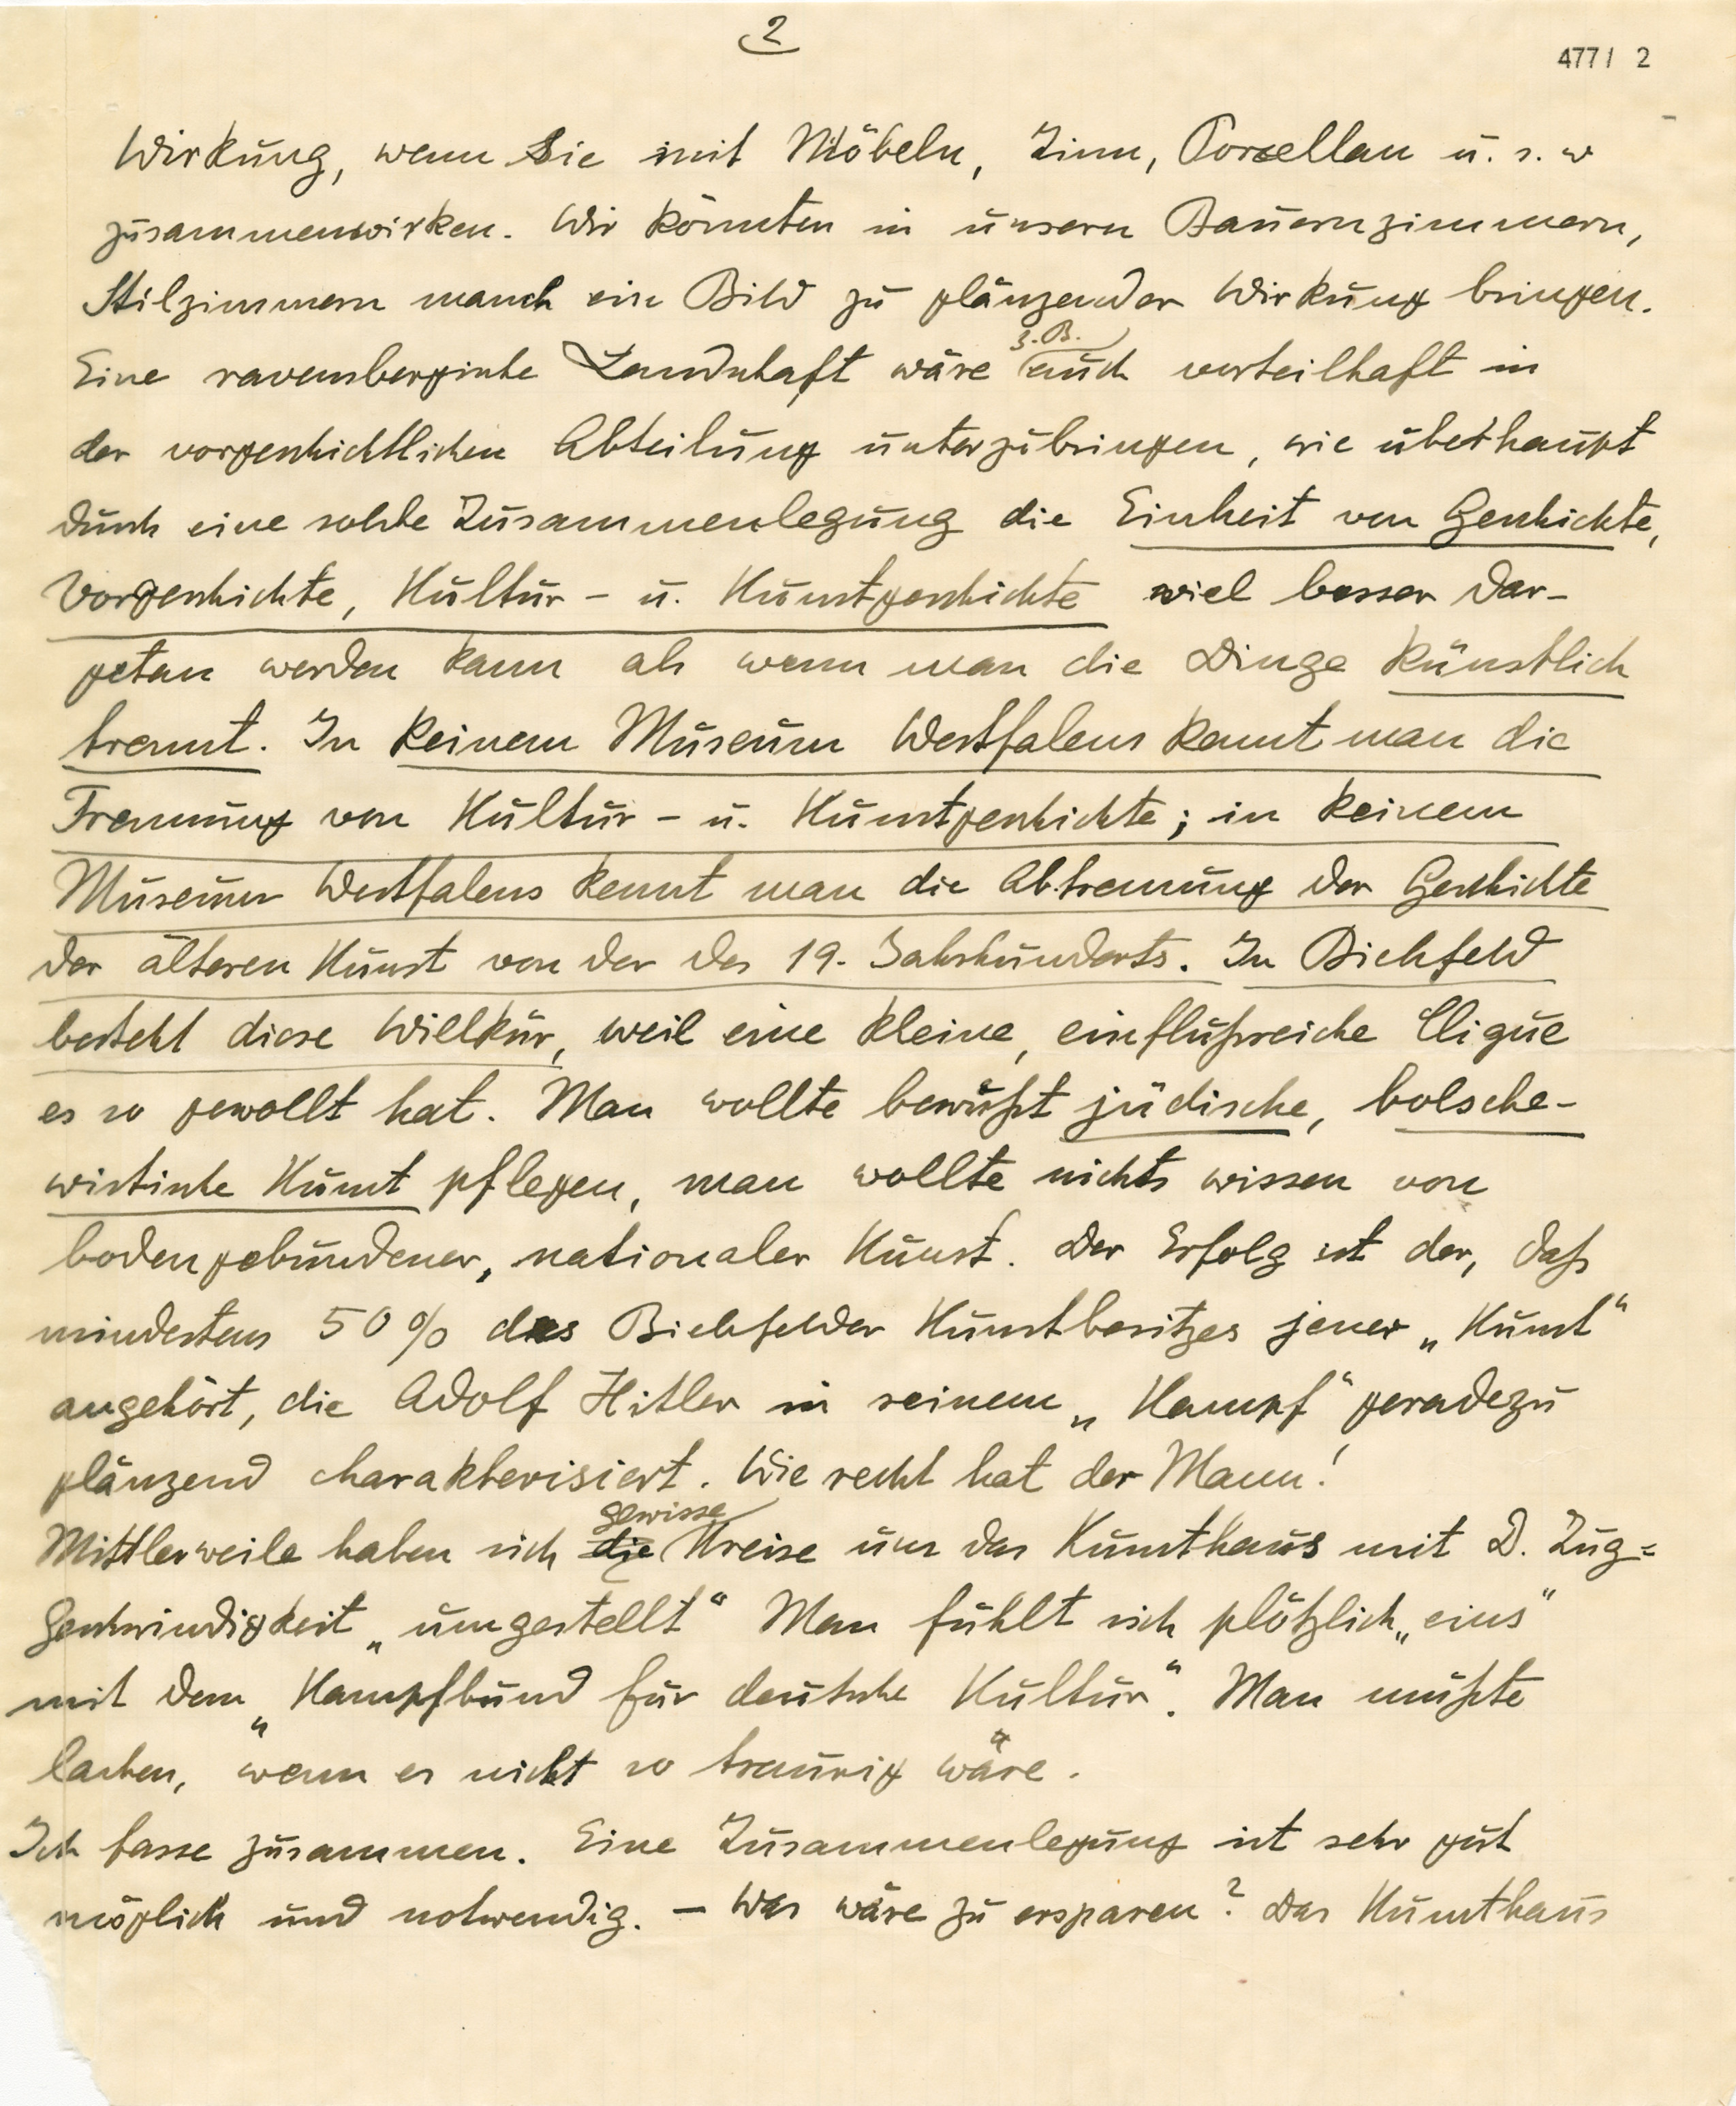 2
477/ 2
Wirkung, wenn Sie mit Möbeln, Zinn, Porzellan u. s. w
zusammenwirken. Wir könnten in unsern Bauernzimmern,
Stilzimmern manch ein Bild zu glänzender Wirkung bringen.
z. B.
Eine ravensbergische Landschaft wäre auch vorteilhaft in
der vorgeschichtlichen Abteilung unterzubringen, wie überhaupt
durch eine solche Zusammenlegung die Einheit von Geschichte,
Vorgeschichte, Kultur- u. Kunstgeschichte viel besser dar-
getan werden kann als wenn man die Dinge künstlich
trennt. In keinem Museum Westfalens kennt man die
Trennung von Kultur- u. Kunstgeschichte; in keinem
Museum Westfalens kennt man die Abtrennung der Geschichte
der älteren Kunst von der des 19. Jahrhunderts. In Bielefeld
besteht diese Willkür, weil eine kleine, einflußreiche Clique
es so gewollt hat. Man wollte bewußt jüdische, bolsche-
wistische Kunst pflegen, man wollte nichts wissen von
bodengebundener, nationaler Kunst. Der Erfolg ist der, daß
mindestens 50% des Bielefelder Kunstbesitzes jener „Kunst“
angehört, die Adolf Hitler in seinem „Kampf“ geradezu
glänzend charakterisiert. Wie recht hat der Mann!
gewisse
Mittlerweile haben sich die Kreise um das Kunsthaus mit D. Zug=
Geschwindigkeit „umgestellt“ Man fühlt sich plötzlich „eins“
mit dem „Kampfbund für deutsche Kultur“. Man müßte
lachen, wenn es nicht so traurig wäre.
Ich fasse zusammen. Eine Zusammenlegung ist sehr gut
möglich und notwendig. – Was wäre zu ersparen? Das Kunsthaus